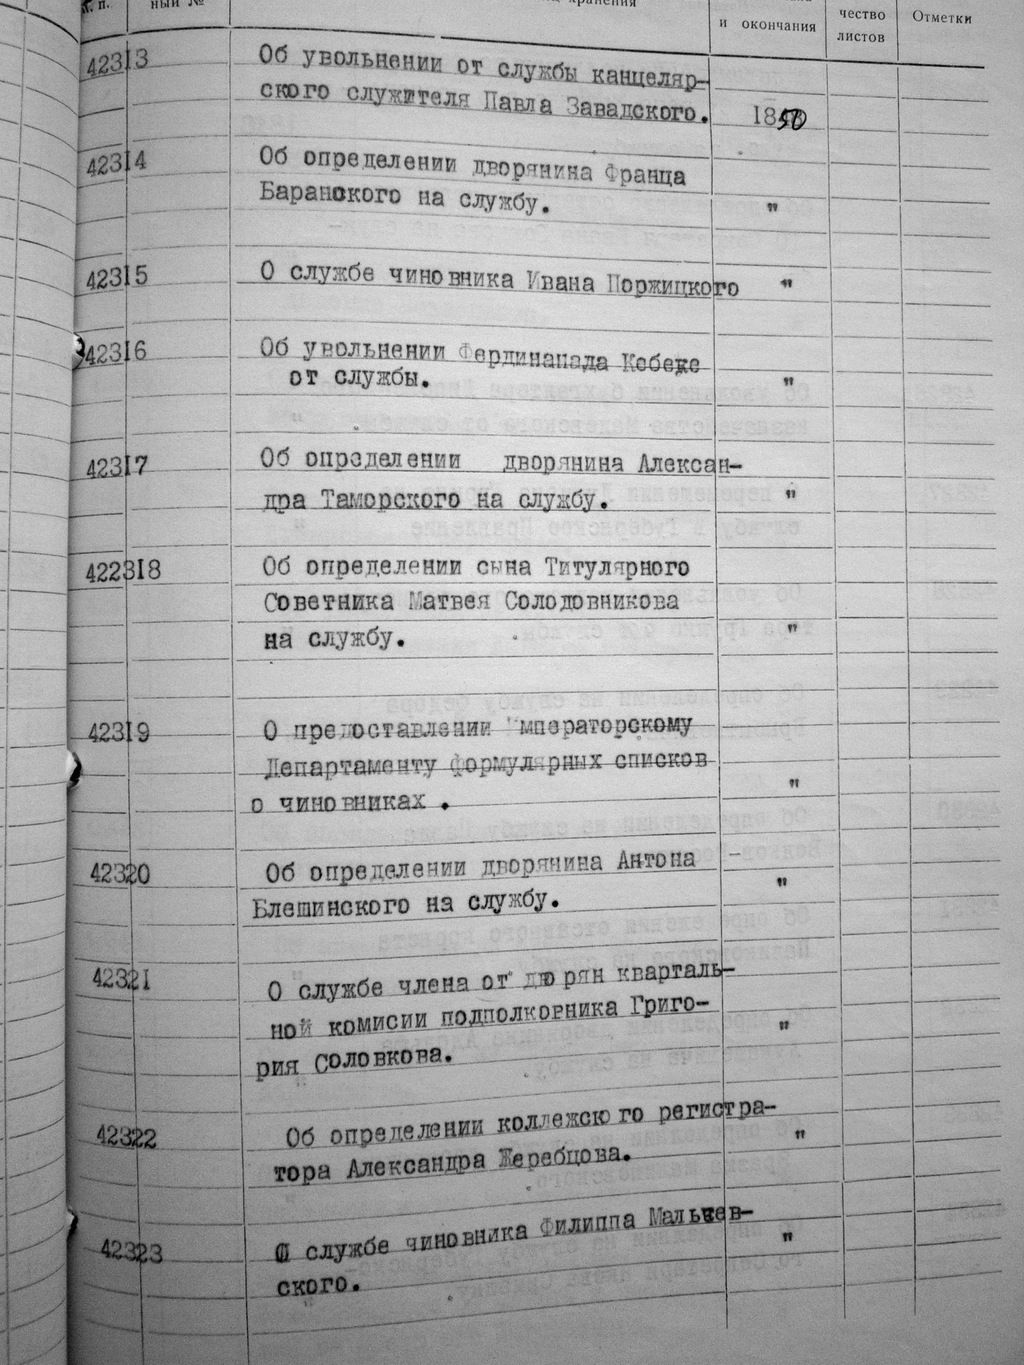 п. ный № хранения
и окончания
чество
листов
Отметки
42313 Об увольнении от службы канцеляр-
ского служителя Павла Завадского. 1850
42314 Об определении дворянина Франца
Баранского на службу. "
42315 О службе чиновника Ивана Поржицкого "
42316 Об увольнении Фердинапада Кебеке
от службы. "
42317 Об определении дворянина Алексан-
дра Таморского на службу. "
422318 Об определении сына Титулярного
Советника Матвея Солодовникова
на службу. "
42319 О предоставлении Императорскому
Департаменту формулярных списков
о чиновниках . "
42320 Об определении дворянина Антона
Блешинского на службу. "
42321 О службе члена от дворян кварталь-
ной комисии подполковника Григо-
рия Соловкова. "
42322 Об определении коллежского регистра-
тора Александра Жеребцова. "
42323 О службе чиновника Филиппа Мальчев-
ского. "